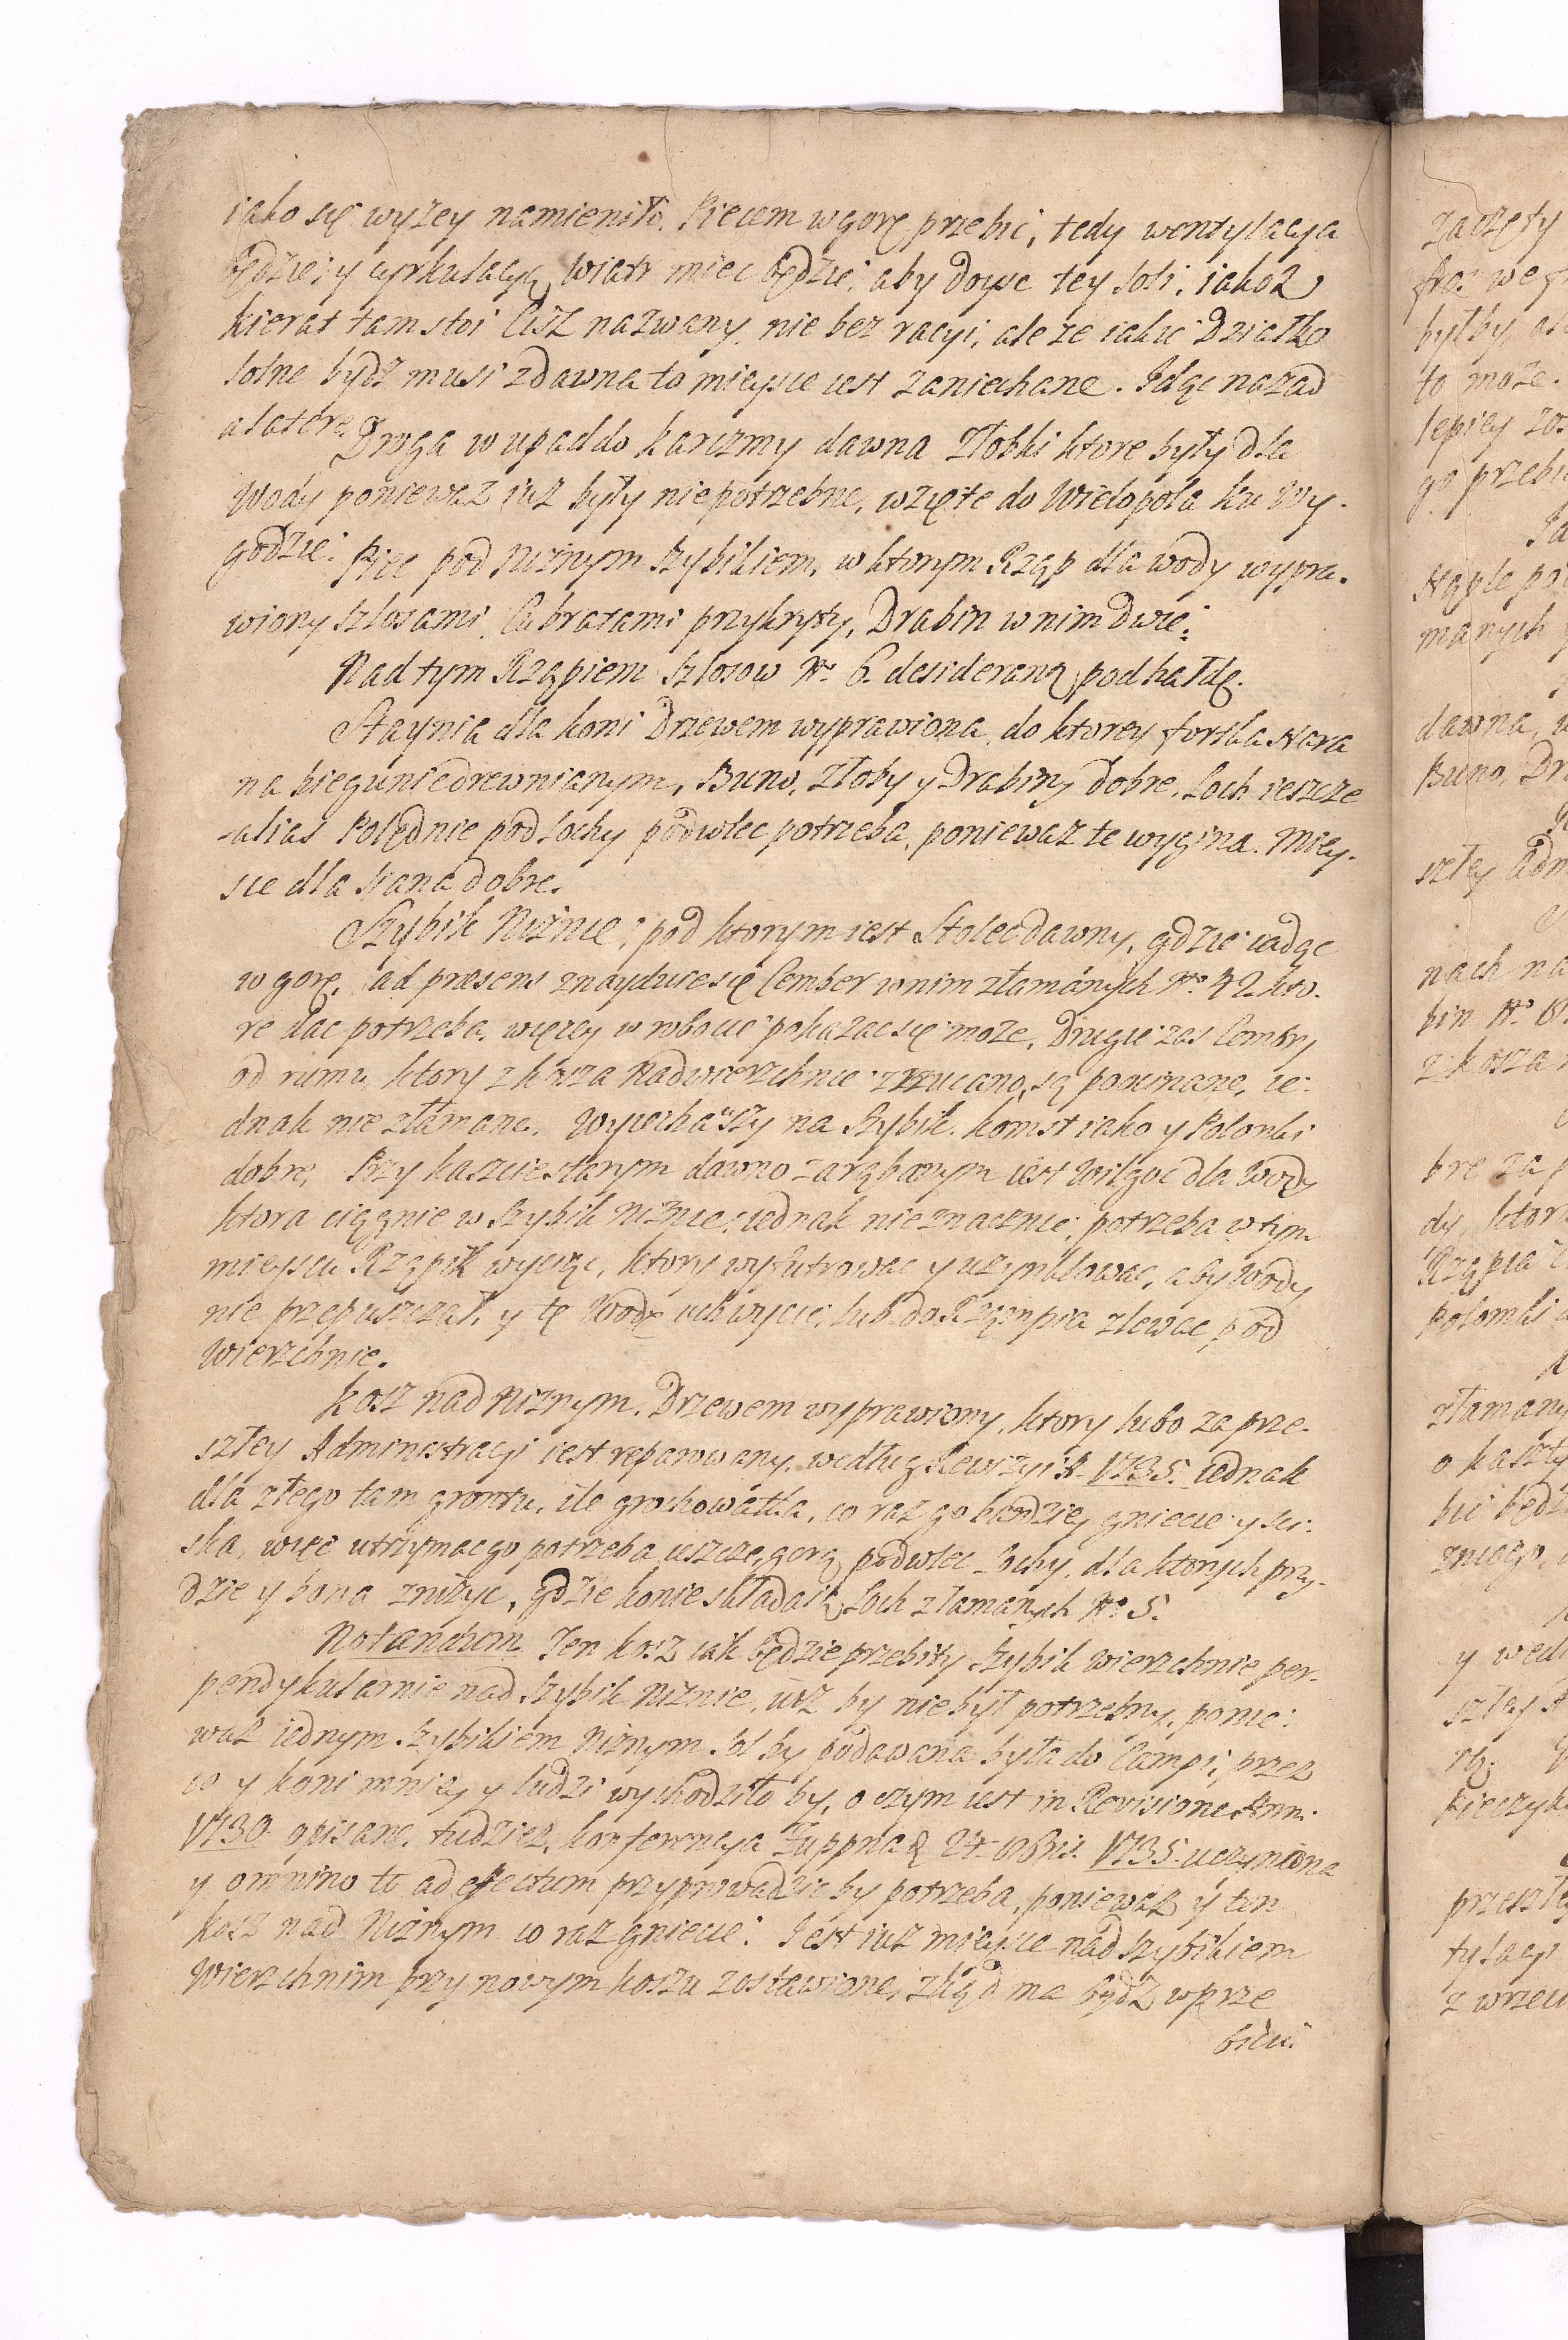 iako się wyzey namieniło. Piecem w gorę przebić, tedy wentylacya
będzie; y cyrkulacyą wiatr miec będzie; aby doysc tey soli; iakoż
kierat tam stoi Cisz nazwany, nie bez racyi, ale ze iakie Działko
solne bydź musi zdawna to mieysce iest zaniechane. Idąc nazad
a latere Droga w upad do karczmy dawna Złobki ktore były dla
Wody poniewaz iuz były niepotrzebne, wzięte do Wielopola ku Wy-
godzie: Piec pod Niznym Szybikiem, w ktorym Rząp dla wody wypra-
wiony Szlosami, Cubratami przykryty, Drabin w nim dwie;
Nad tym Rząpiem Szlosow No. 6. desiderant pod hałdę.
Staynia dla koni Drzewem wyprawiona, do ktorey fortka stara
na biegunie drewnianym, Buno, Złoby y Drabiny dobre, Loch ieszcze
alias Polędnie pod Lochy podwlec potrzeba, poniewaz te wygina. Miey-
sce dla siana dobre.
Szybik Niznie; pod ktorym iest Stolec dawny, gdzie iadąc
w gorę, ad præsens znayduie się Cember w nim złamanych No. 42. kto-
re dac potrzeba, więcey w robocie pokazac się moze, Drugie zas Cembry
od rumu, ktory z kosza Nadwierzchnie zrzucano, są poscinane, ie-
dnak nie złamane. Wyiechawszy na Szybik. komst iako y Polonki
dobre, Przy kaszcie starym dawno zarąbanym iest Wilgoc dla Wody
ktora ciągnie w Szybik Niznie; iednak nieznacznie; potrzeba w tym
mieyscu Rząpik wyciąc, ktory wyfutrowac y uszynklowac, aby Wody
nie przepuszczał, y tę Wodę uchwycic; lub do Rząmpia zlewac pod
Wierzchnie.
Kosz nad Niznym. Drzewem wyprawiony, ktory lubo za prze-
szłey Administracyi iest reparowany, według Rewizyi R. 1735. iednak
dla złego tam gruntu, ile grochowatka, co raz go bardziey gniecie y sci-
ska, więc utrzymac go potrzeba ieszcze, gorą podwlec Lochy, dla ktorych przy-
dzie y bona znizyc, gdzie konie składaią Loch złamanych No. 5.
Notandum Ten kosz iak będzie przebity Szybik wierzchnie per-
pendykularnie nad Szybik Niznie, iuz by nie był potrzebny, ponie-
waz iednym Szybikiem Niznym Sol by podawana była do Campi, przez
co y koni mniey y ludzi wychodziło by, o czym iest in Revisione Ann.
1730. opisane, tudziez konferencya Zuppna d. 24. 9bris. 1735. uczyniona
y omnino to ad effectum przyprowadzic by potrzeba, poniewaz y ten
kosz nad Niznym co raz gniecie: Iest iuz mieysce nad Szybikiem
Wierzchnim przy nowym koszu zostawione, zkąd ma bydź w prze
biciu